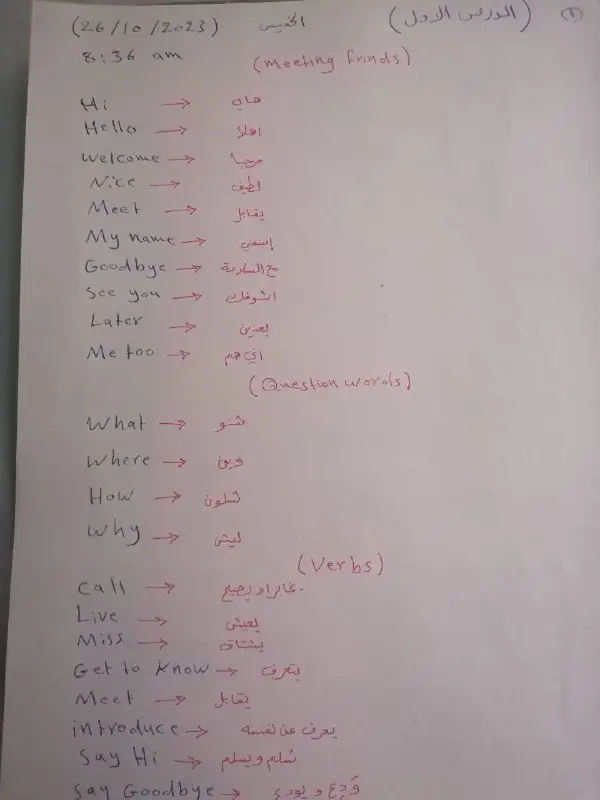 (26/10/2023) الخميس (الدرس الاول) ①
8:36 am
(Meeting frinds)
Hi → هاي
Hello → اهلاً
welcome → مرحباً
Nice → لطيف
Meet → يقابل
My name → إسمي
Goodbye → مع السلامة
See you → اشوفك
Later → بعدين
Me too → اني هم
(Question words)
What → شنو
Where → وين
How → شلون
Why → ليش
(Verbs)
Call → يخابر او يصيح
Live → يعيش
Miss → يشتاق
Get to know → يتعرف
Meet → يقابل
introduce → يعرف عن نفسه
Say Hi → سَلم ويسلم
Say Goodbye → وَدِع و يودع